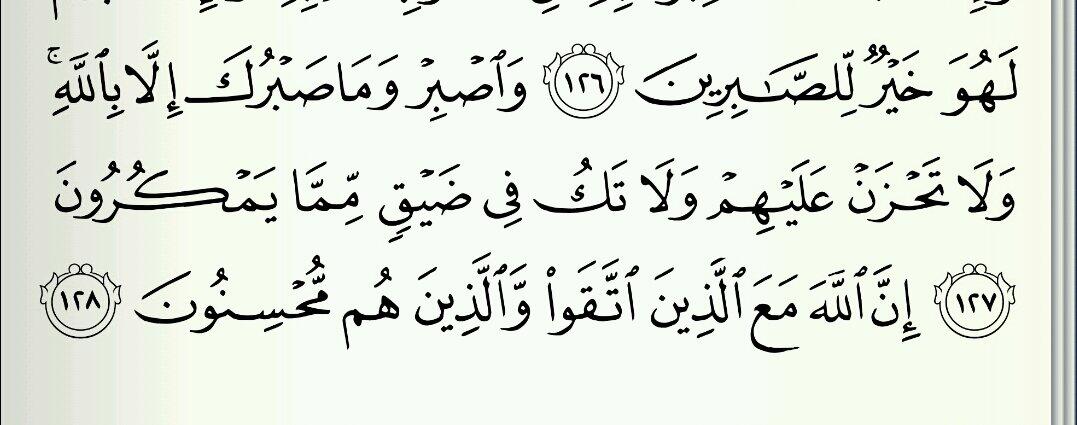 لَهُوَ خَيْرٌ لِّلصَّـٰبِرِينَ ١٢٦ وَٱصْبِرْ وَمَا صَبْرُكَ إِلَّا بِٱللَّهِ ۚ
وَلَا تَحْزَنْ عَلَيْهِمْ وَلَا تَكُ فِى ضَيْقٍ مِّمَّا يَمْكُرُونَ
١٢٧ إِنَّ ٱللَّهَ مَعَ ٱلَّذِينَ ٱتَّقَوا۟ وَّٱلَّذِينَ هُم مُّحْسِنُونَ ١٢٨